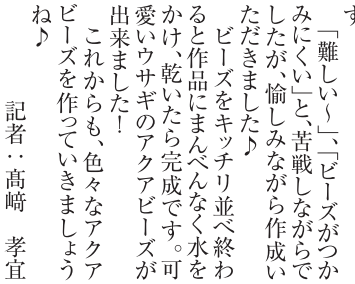 す
「難しい～」、「ビーズがつか
みにくい」と、苦戦しながらで
したが、愉しみながら作成い
ただきました♪
ビーズをキッチリ並べ終わ
ると作品にまんべんなく水を
かけ、乾いたら完成です。可
愛いウサギのアクアビーズが
出来ました！
これからも、色々なアクア
ビーズを作っていきましょう
ね♪
記者：髙﨑　孝宜